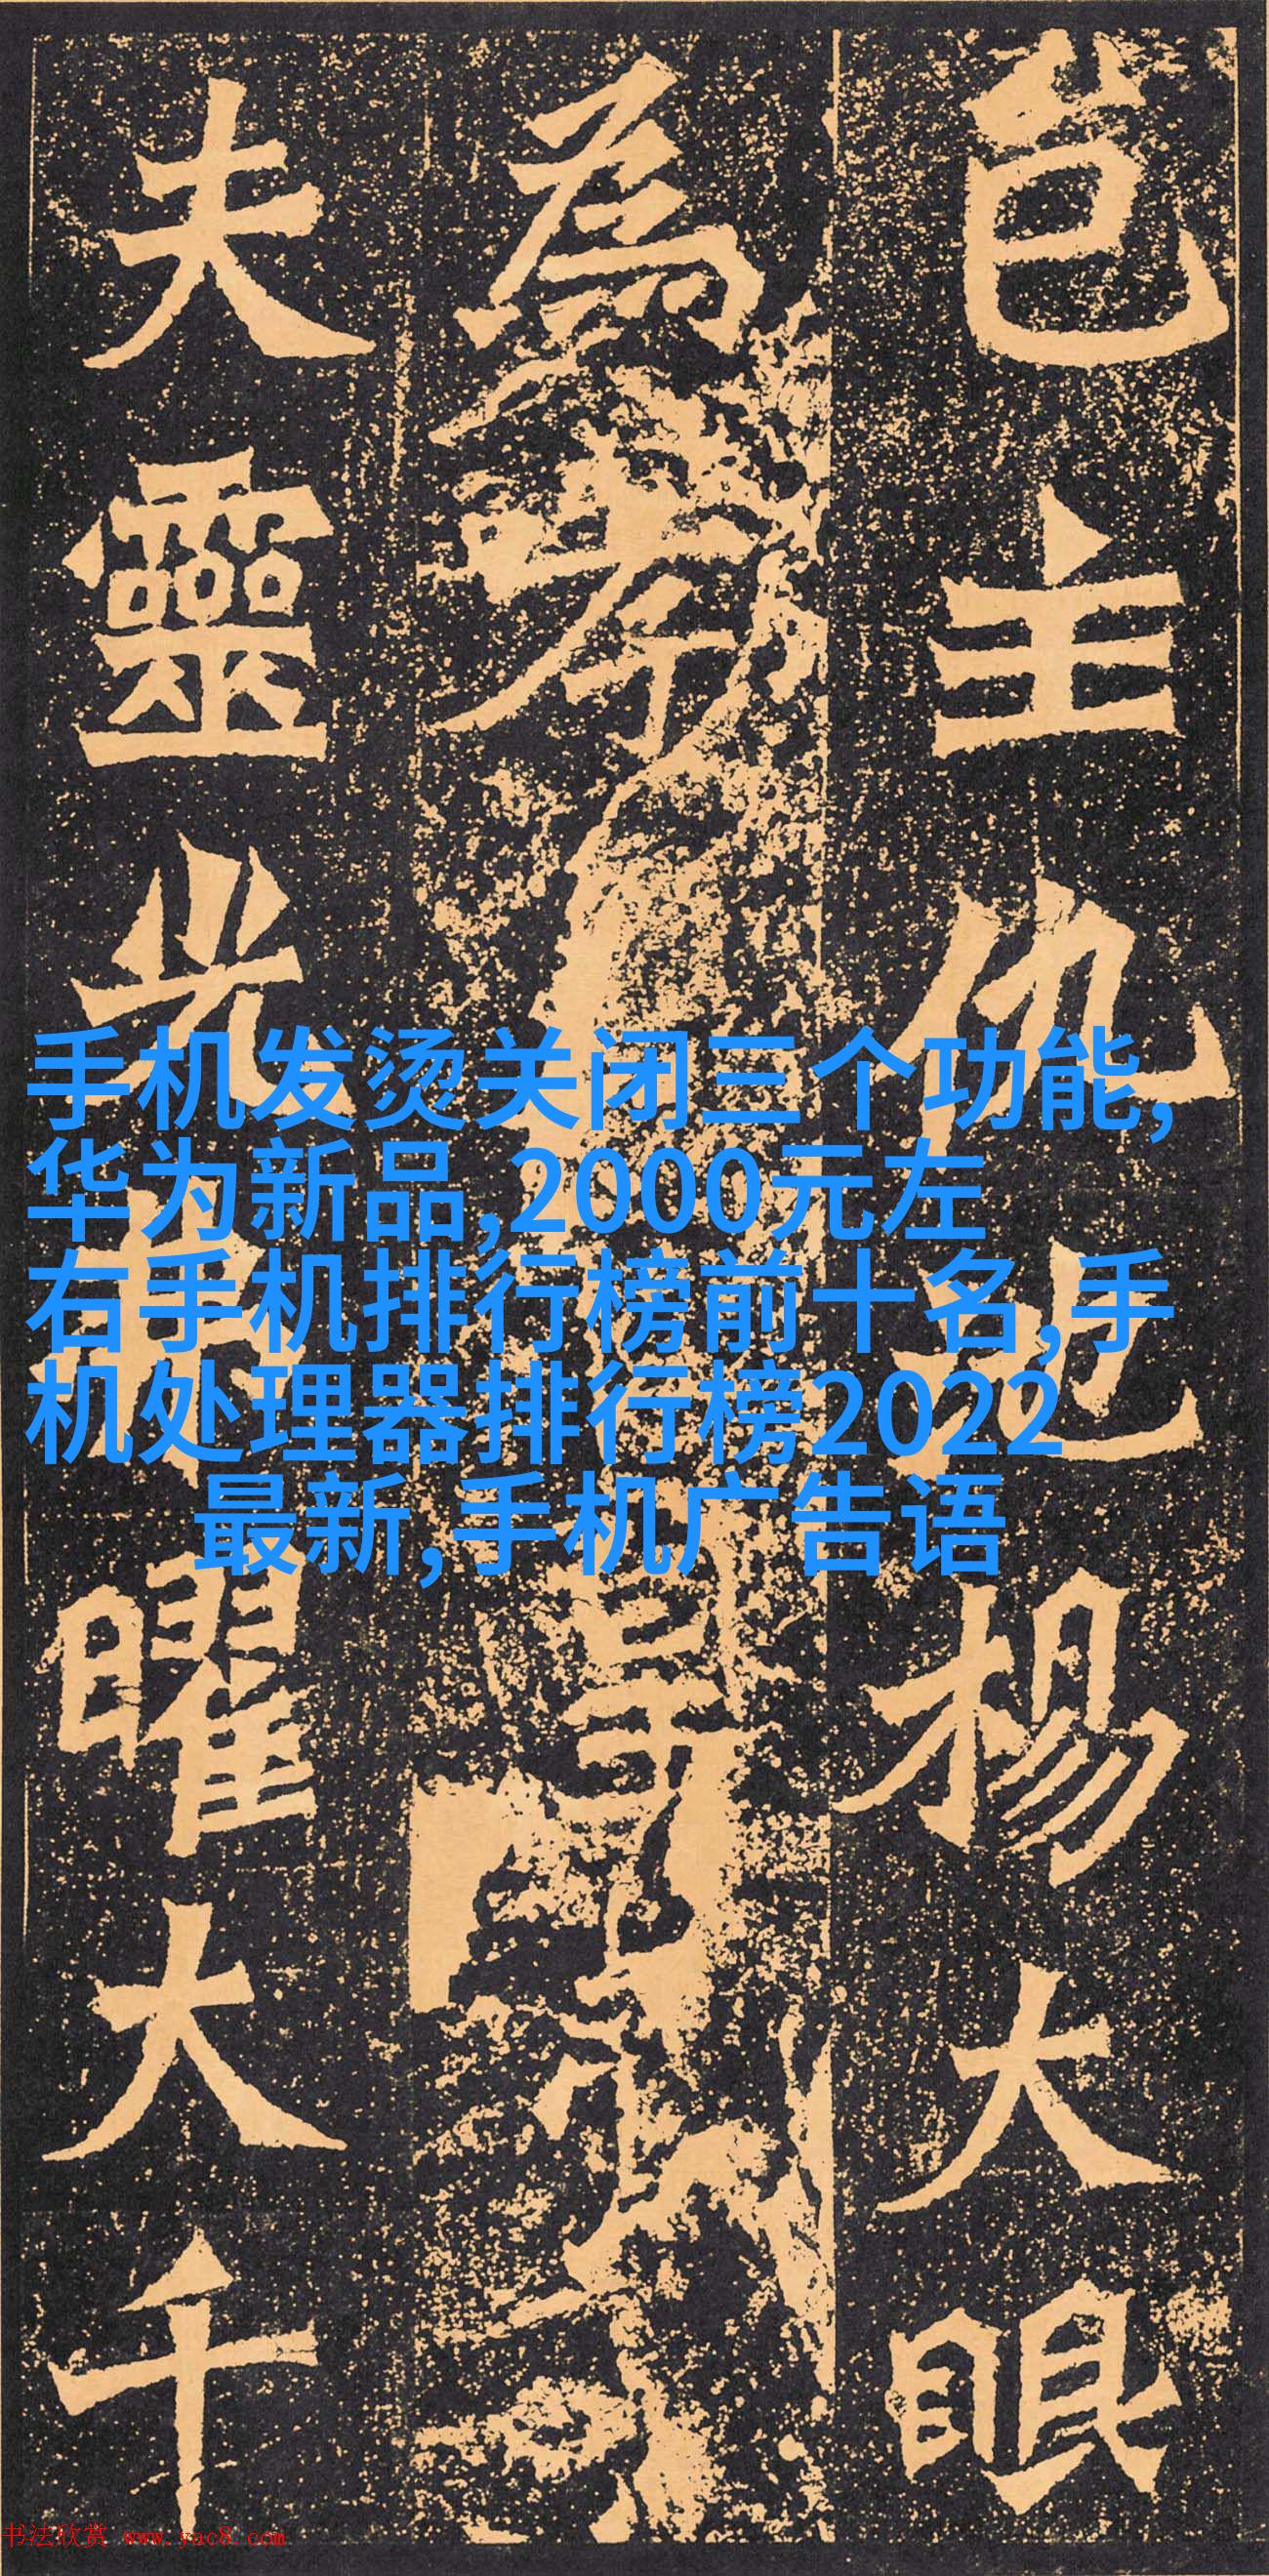 邑主仇池楊大眼
為孝
夫靈光
曜大千
手机发烫关闭三个功能,
华为新品,2000元左
右手机排行榜前十名,手
机处理器排行榜2022
最新,手机广告语
书法欣赏 www.yac8.com